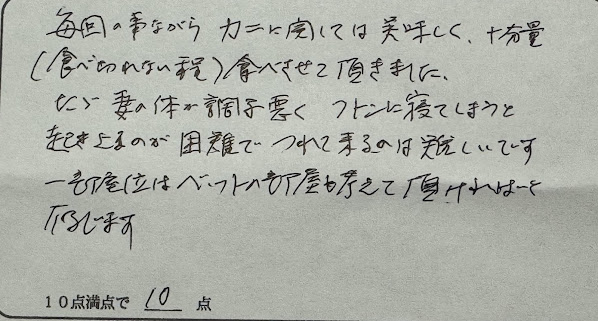 毎回の事ながら カニに関しては 美味しく、十分量
(食べ切れない程) 食べさせて頂きました、
たゞ 妻の体が調子悪く フトンに寝てしまうと
起き上るのが 困難で つれて来るのは難しいです
一部屋位はベットの部屋も考えて頂ければーと
存じます
10点満点で 10 点